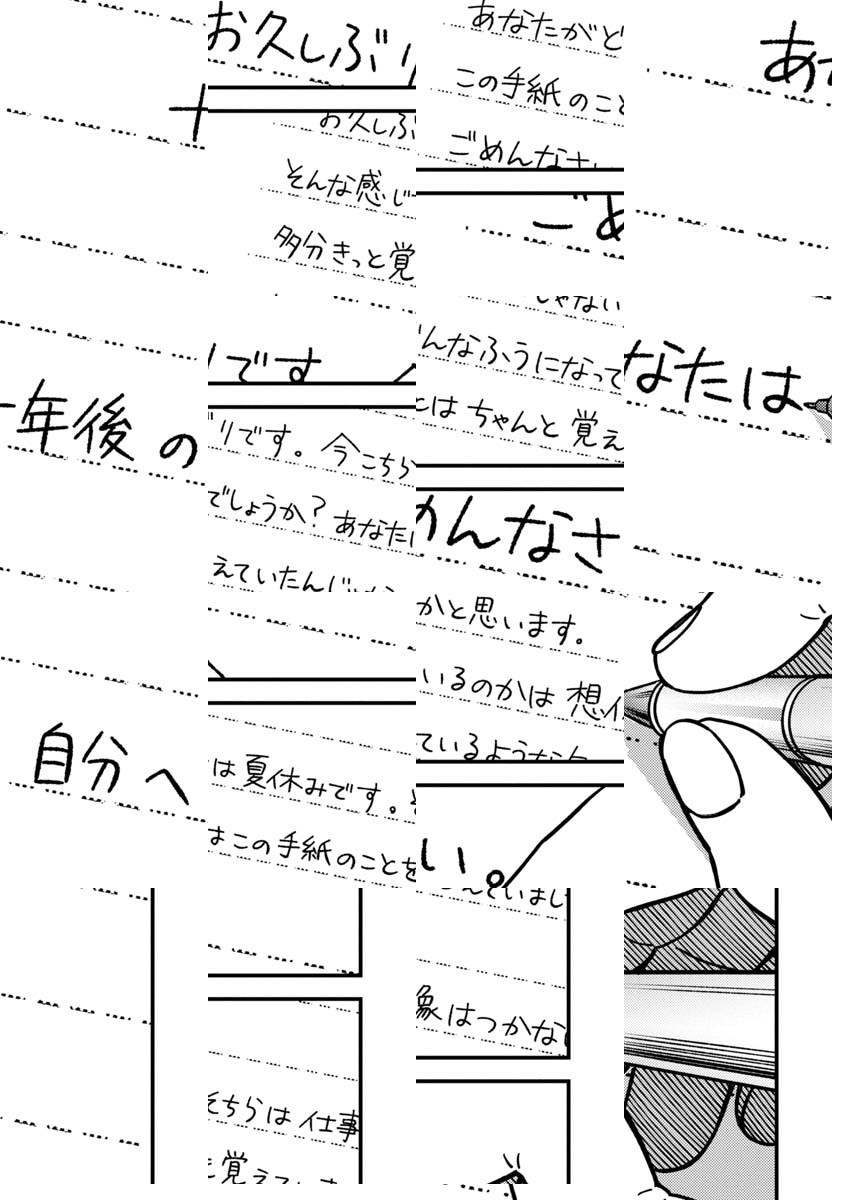 十年後の自分へ
お久しぶりです
お久しぶりです。今こちらは夏休みです。そちらは仕事
そんな感じでしょうか?あなたはこの手紙のことを覚えていま
多分きっと覚えていたんじゃないかと思います。
あなたがどんなふうになっているのかは想像はつかない
この手紙のことはちゃんと覚えているような
ごめんなさい
ごめんなさい。
あなたは